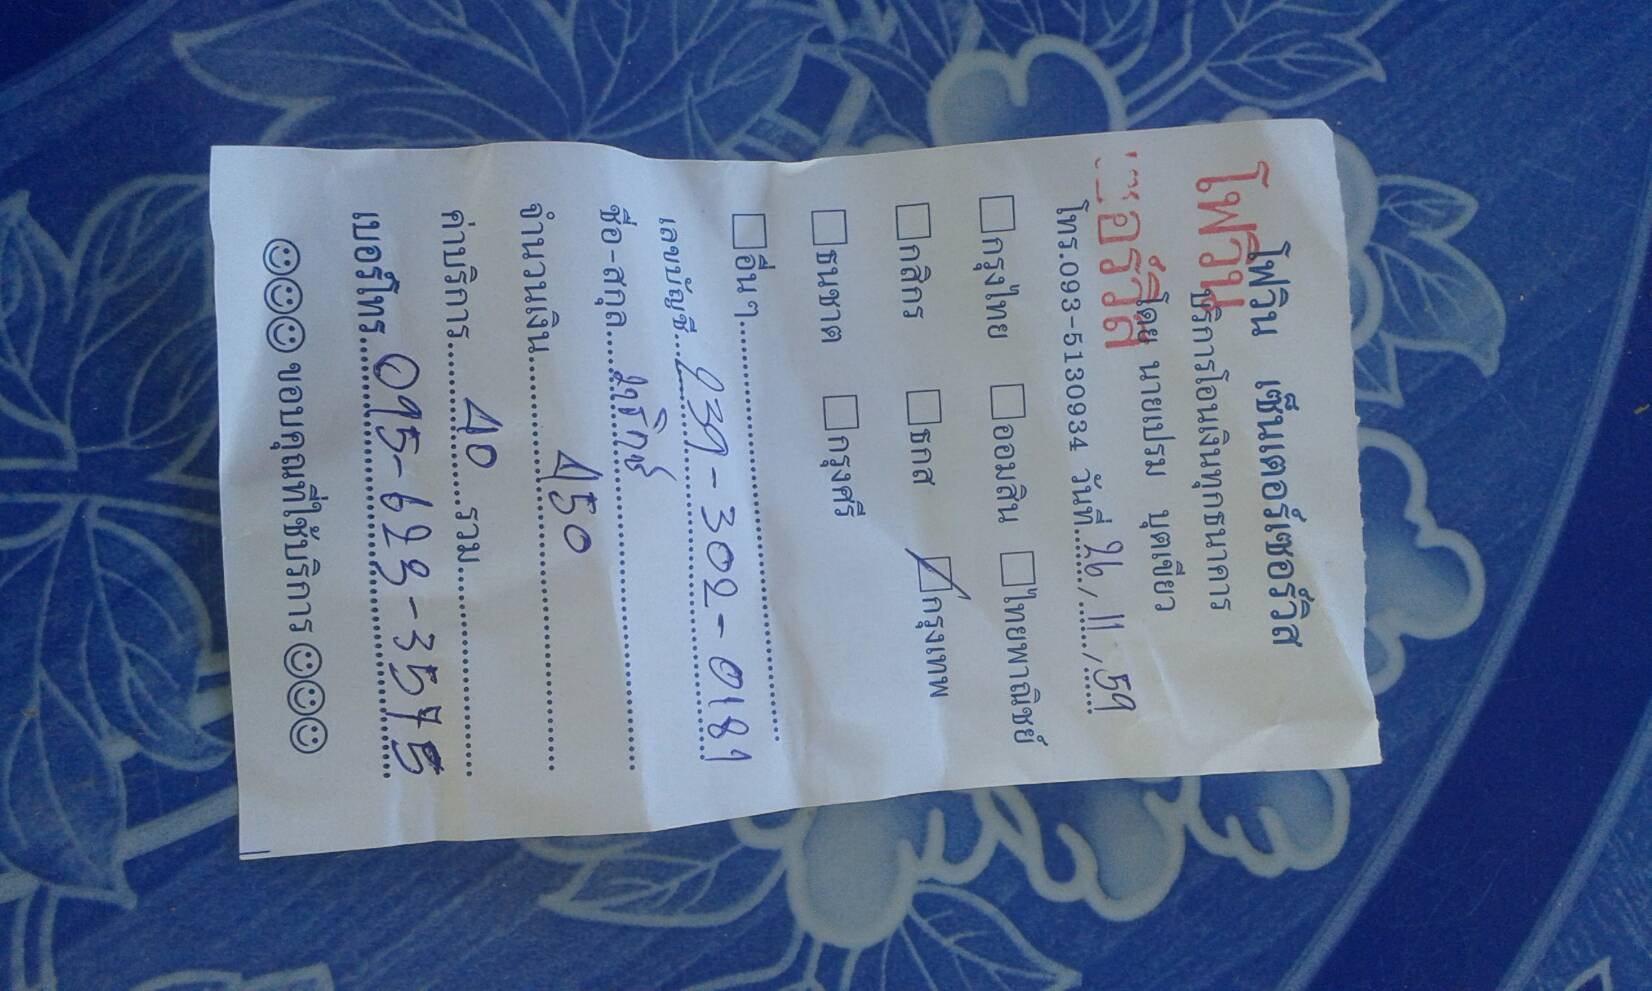 โฟวิน เซ็นเตอร์เซอร์วิส
โฟวิน
บริการโอนเงินทุกธนาคาร
เซอร์วิส
โดย นายเปรม บุตเขียว
โทร.093-5130934 วันที่ 26 / 11 / 59
กรุงไทย ออมสิน ไทยพาณิชย์
กสิกร ธกส กรุงเทพ
ธนชาต กรุงศรี
อื่นๆ
เลขบัญชี 239-302-0181
ชื่อ-สกุล
จำนวนเงิน 450
ค่าบริการ 40 รวม
เบอร์โทร 095-623-3575
ขอบคุณที่ใช้บริการ